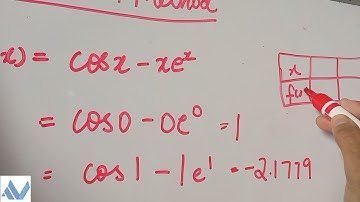 Method
x) = cosx - xeˣ
x
f(x
= cos0 - 0e⁰ = 1
= cos1 - 1e¹ = -2.1779